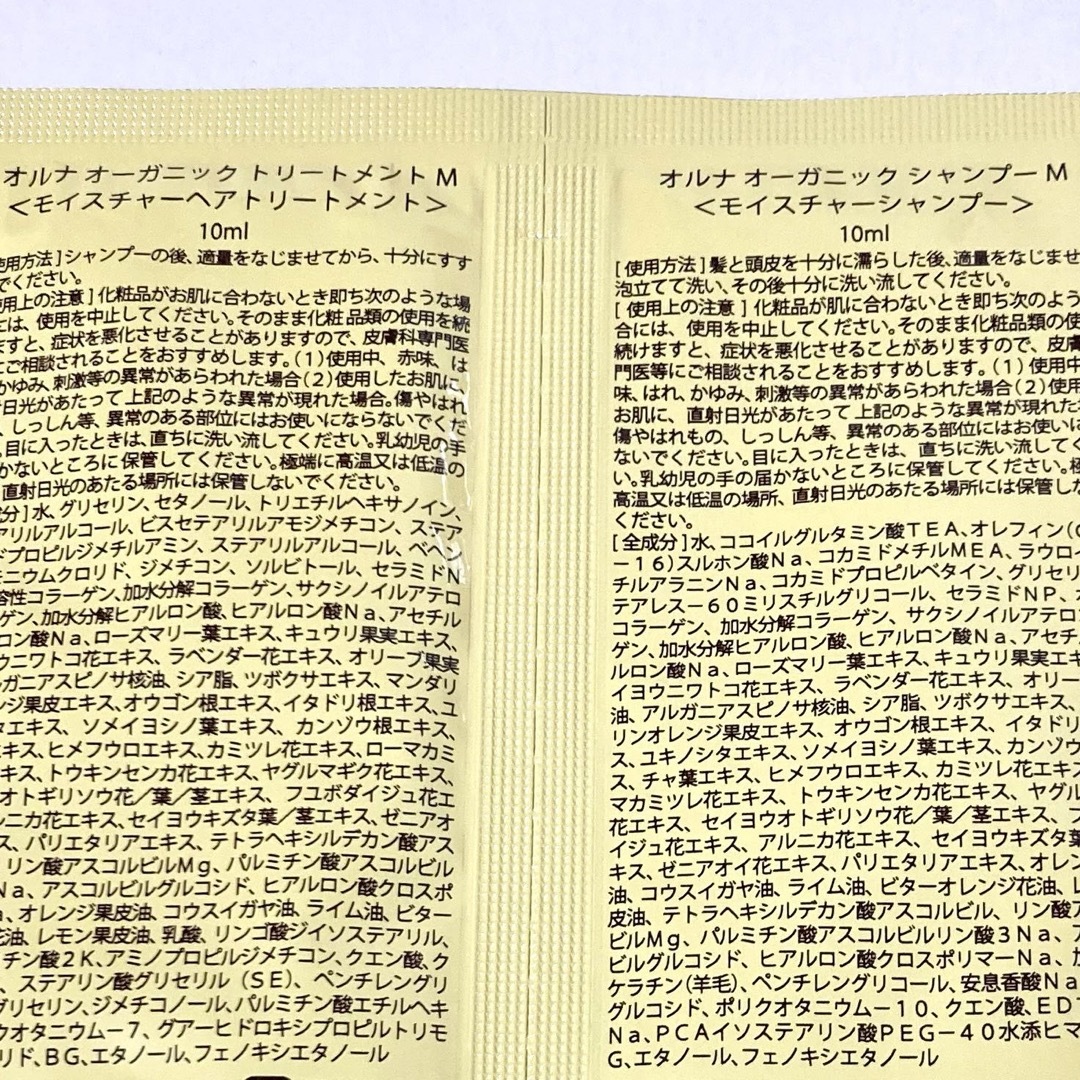 オルナ オーガニック トリートメント M
＜モイスチャーヘアトリートメント＞
10ml
使用方法］シャンプーの後、適量をなじませてから、十分にすす
でください。
使用上の注意］化粧品がお肌に合わないとき即ち次のような場
には、使用を中止してください。そのまま化粧品類の使用を続
ますと、症状を悪化させることがありますので、皮膚科専門医
にご相談されることをおすすめします。（1）使用中、赤味、は
かゆみ、刺激等の異常があらわれた場合（2）使用したお肌に、
射日光があたって上記のような異常が現れた場合。傷やはれ
、しっしん等、異常のある部位にはお使いにならないでくだ
。目に入ったときは、直ちに洗い流してください。乳幼児の手
かないところに保管してください。極端に高温又は低温の
直射日光のあたる場所には保管しないでください。
成分］水、グリセリン、セタノール、トリエチルヘキサノイン、
アリルアルコール、ビスセテアリルアモジメチコン、ステア
ドプロピルジメチルアミン、ステアリルアルコール、ベヘン
モニウムクロリド、ジメチコン、ソルビトール、セラミドN
溶性コラーゲン、加水分解コラーゲン、サクシノイルアテロ
ゲン、加水分解ヒアルロン酸、ヒアルロン酸Na、アセチル
ロン酸Na、ローズマリー葉エキス、キュウリ果実エキス、
ウニワトコ花エキス、ラベンダー花エキス、オリーブ果実
ルガニアスピノサ核油、シア脂、ツボクサエキス、マンダリ
ンジ果皮エキス、オウゴン根エキス、イタドリ根エキス、ユ
タエキス、ソメイヨシノ葉エキス、カンゾウ根エキス、
エキス、ヒメフウロエキス、カミツレ花エキス、ローマカミ
キス、トウキンセンカ花エキス、ヤグルマギク花エキス、
オトギリソウ花／葉／茎エキス、フユボダイジュ花エ
ルニカ花エキス、セイヨウキズタ葉／茎エキス、ゼニアオ
ス、パリエタリアエキス、テトラヘキシルデカン酸アス
リン酸アスコルビルMg、パルミチン酸アスコルビル
Na、アスコルビルグルコシド、ヒアルロン酸クロスポ
a、オレンジ果皮油、コウスイガヤ油、ライム油、ビター
花油、レモン果皮油、乳酸、リンゴ酸ジイソステアリル、
チン酸2K、アミノプロピルジメチコン、クエン酸、ク
、ステアリン酸グリセリル（SE）、ペンチレングリ
グリセリン、ジメチコノール、パルミチン酸エチルヘキ
クオタニウム－7、グアーヒドロキシプロピルトリモ
リド、BG、エタノール、フェノキシエタノール
オルナ オーガニック シャンプー M
＜モイスチャーシャンプー＞
10ml
［使用方法］髪と頭皮を十分に濡らした後、適量をなじませ
泡立てて洗い、その後十分に洗い流してください。
［使用上の注意］化粧品が肌に合わないとき即ち次のよう
合には、使用を中止してください。そのまま化粧品類の使
続けますと、症状を悪化させることがありますので、皮膚
門医等にご相談されることをおすすめします。（1）使用中
味、はれ、かゆみ、刺激等の異常があらわれた場合（2）使用
お肌に、直射日光があたって上記のような異常が現れた
傷やはれもの、しっしん等、異常のある部位にはお使いに
ないでください。目に入ったときは、直ちに洗い流してく
い。乳幼児の手の届かないところに保管してください。極
高温又は低温の場所、直射日光のあたる場所には保管しな
ください。
［全成分］水、ココイルグルタミン酸TEA、オレフィン（C
－16）スルホン酸Na、コカミドメチルMEA、ラウロイ
チルアラニンNa、コカミドプロピルベタイン、グリセリ
テアレス－60ミリスチルグリコール、セラミドNP、
コラーゲン、加水分解コラーゲン、サクシノイルアテロ
ゲン、加水分解ヒアルロン酸、ヒアルロン酸Na、アセチ
ルロン酸Na、ローズマリー葉エキス、キュウリ果実エキ
イヨウニワトコ花エキス、ラベンダー花エキス、オリー
油、アルガニアスピノサ核油、シア脂、ツボクサエキス、
リンオレンジ果皮エキス、オウゴン根エキス、イタドリ
ス、ユキノシタエキス、ソメイヨシノ葉エキス、カンゾウ
ス、チャ葉エキス、ヒメフウロエキス、カミツレ花エキス
マカミツレ花エキス、トウキンセンカ花エキス、ヤグル
花エキス、セイヨウオトギリソウ花／葉／茎エキス、
イジュ花エキス、アルニカ花エキス、セイヨウキズタ葉
キス、ゼニアオイ花エキス、パリエタリアエキス、オレン
油、コウスイガヤ油、ライム油、ビターオレンジ花油、レ
皮油、テトラヘキシルデカン酸アスコルビル、リン酸ア
ビルMg、パルミチン酸アスコルビルリン酸3Na、ア
ビルグルコシド、ヒアルロン酸クロスポリマーNa、加
ケラチン（羊毛）、ペンチレングリコール、安息香酸Na
グルコシド、ポリクオタニウム－10、クエン酸、EDT
Na、PCAイソステアリン酸PEG－40水添ヒマ
G、エタノール、フェノキシエタノール